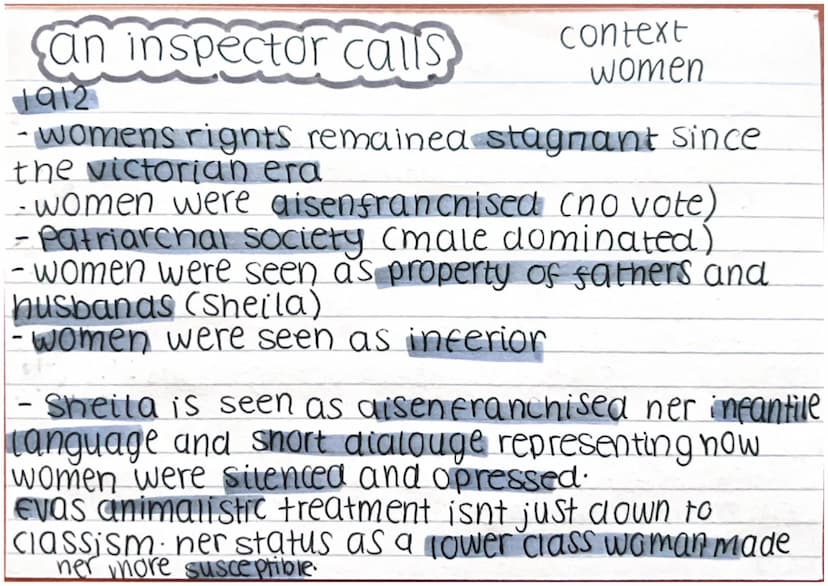 an inspector calls
context
women
1912
- womens rights remained stagnant since
the victorian era
- women were disenfranchised (no vote)
- Patriarchal society (male dominated)
- women were seen as property of fathers and
husbands (Sheila)
- women were seen as inferior
- Sheila is seen as disenfranchised her infantile
language and short dialouge representing how
women were silenced and opressed.
Evas animalistic treatment isnt just down to
classism. her status as a lower class woman made
her more susceptible.